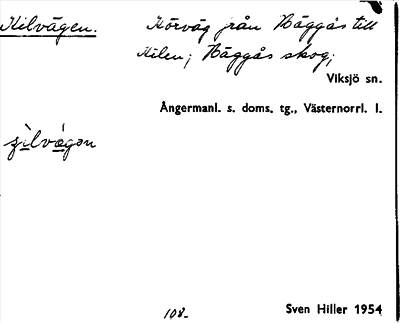 Kilvägen. Körväg från Häggås till
Kilen; Häggås skog;
Viksjö sn.
Ångermanl. s. doms. tg., Västernorrl. l.
108. Sven Hiller 1954